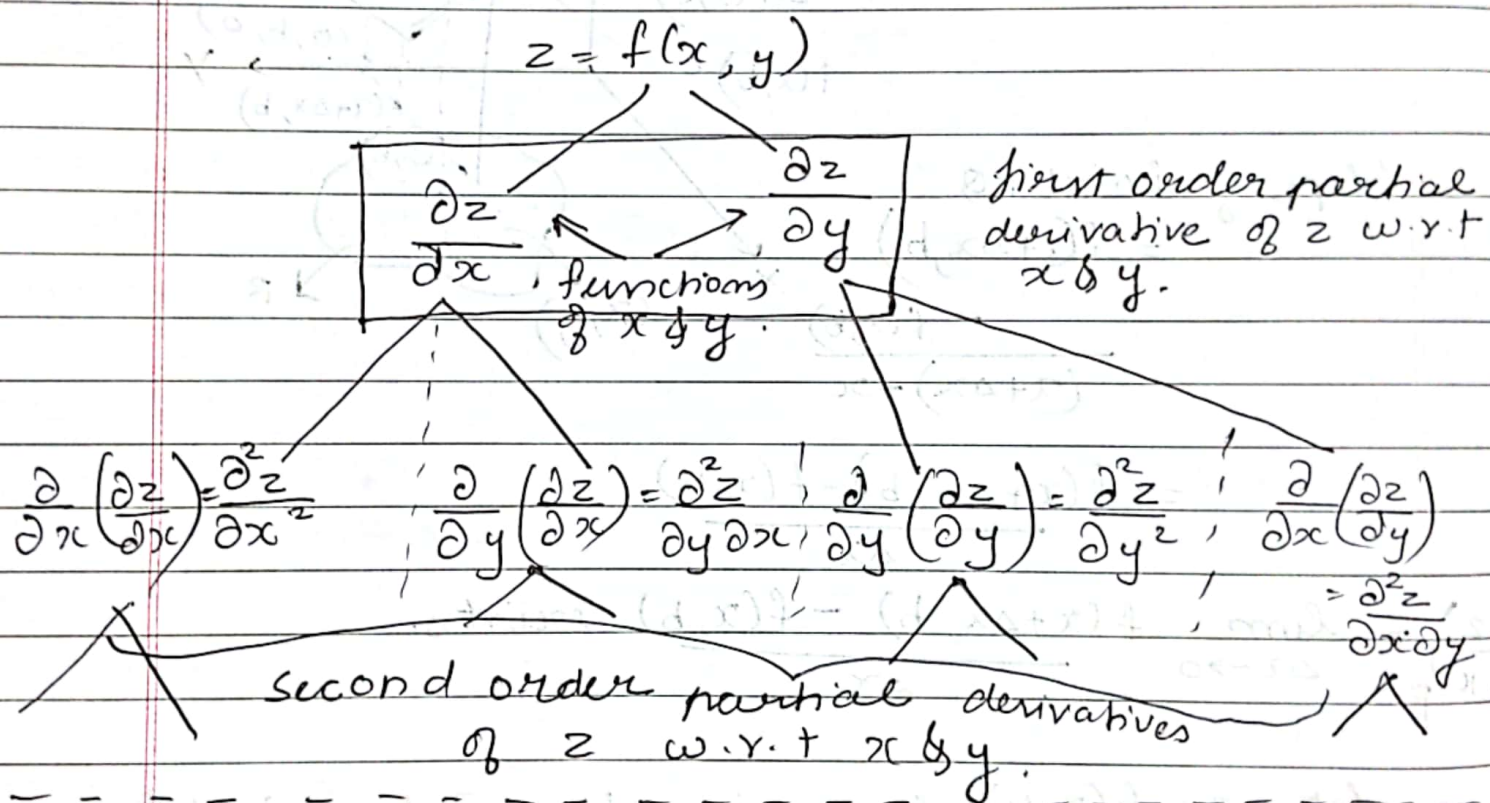 z = f(x, y)
∂z/∂x ∂z/∂y
functions
of x & y.
first order partial
derivative of z w.r.t
x & y.
∂/∂x (∂z/∂x) = ∂²z/∂x² ∂/∂y (∂z/∂x) = ∂²z/∂y∂x ∂/∂y (∂z/∂y) = ∂²z/∂y² ∂/∂x (∂z/∂y)
= ∂²z/∂x∂y
second order partial derivatives
of z w.r.t x & y.